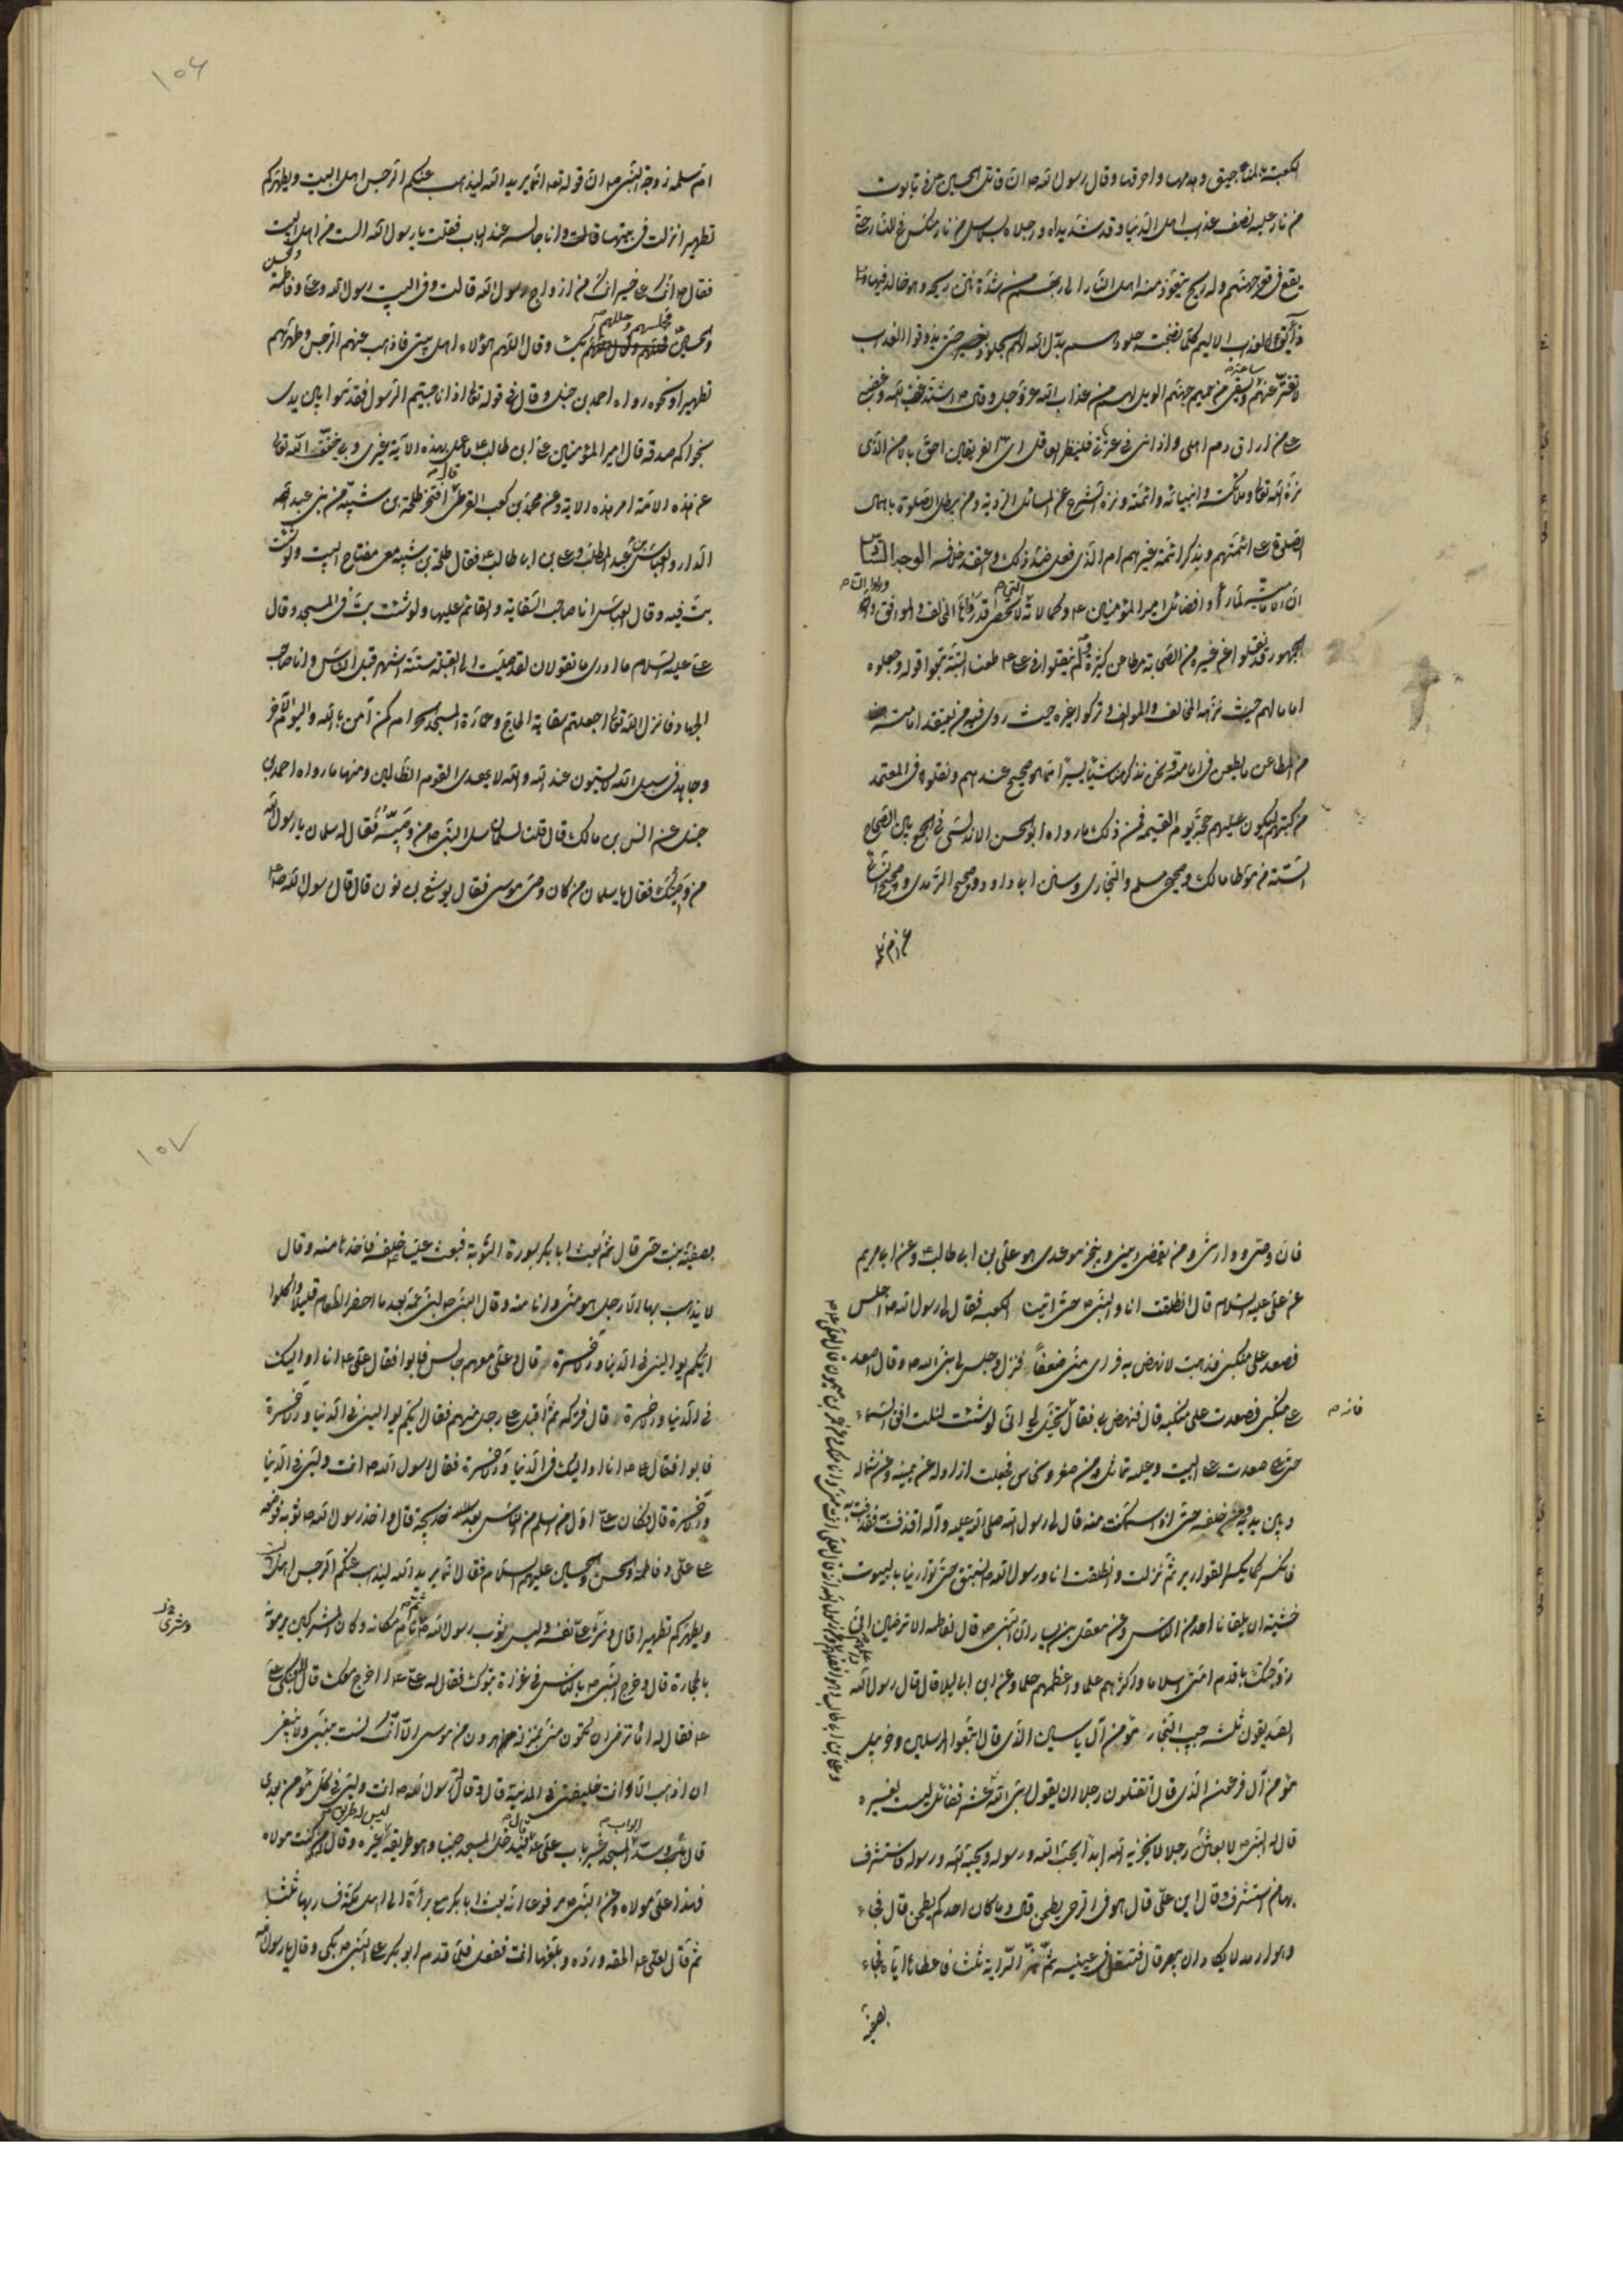 الكعبة بالمنجنيق وهدمها واحرقها وقال رسول الله ص ان قاتل الحسين ع في تابوت
من نار عليه نصف عذاب اهل الدنيا وقد شد يداه ورجلاه بسلاسل من نار منكس في النار حتى
يقع في قعر جهنم وله ريح يتعوذ منه اهل النار الى ربهم من شدة نتن ريحه وهو خالد فيها
ذائق العذاب الاليم كلما نضجت جلودهم بدل الله لهم الجلود حتى يذوقوا العذاب
لا يفتر عنهم ساعة ويسقى من حميم جهنم الويل لهم من عذاب الله عز وجل وقال ص اشتد غضب الله وغضبي
على من اراق دم اهلي واذاني في عترتي فلينظر العاقل اي الفريقين احق بالامن الذي
نزه الله تعالى وملائكته وانبيائه وائمته ونزه الشرع عن المسائل الردية ومن يبطل الصلوة باهمال
الصلوة على ائمتهم ويذكر ائمة غيرهم ام الذي فعل ضد ذلك واعتقد خلافه الوجه السادس
ان الامامية لما رأوا فضائل امير المؤمنين ع وكمالاته التي لا تحصى قد رواها المخالف والموافق ورأوا
الجمهور قد نقلوا عن غيره من الصحابة مطاعن كثيرة ولم ينقلوا في علي ع طعنا البتة اتبعوا قوله وجعلوه
اماما لهم حيث نزهه المخالف والموالف وتركوا غيره حيث روى فيه من يعتقد امامته
من المطاعن ما يطعن في امامته ونحن نذكر هنا شيئا يسيرا مما هو صحيح عندهم ونقلوه في المعتمد
من كتبهم ليكون عليهم حجة يوم القيمة فمن ذلك ما رواه ابو الحسن الاندلسي في الجمع بين الصحاح
الستة من موطا مالك وصحيح مسلم والبخاري وسنن ابي داود وصحيح الترمذي وصحيح النسائي
عن ام سلمة
١٥٦
ام سلمة زوجة النبي ص ان قوله تعالى انما يريد الله ليذهب عنكم الرجس اهل البيت ويطهركم
تطهيرا نزلت في بيتها قالت وانا جالسة عند الباب فقلت يا رسول الله الست من اهل البيت
فقال ص انك على خير انك من ازواج رسول الله قالت وفي البيت رسول الله وعلي وفاطمة والحسن
والحسين فجللهم بكساء وقال اللهم هؤلاء اهل بيتي فاذهب عنهم الرجس وطهرهم
تطهيرا ونحوه رواه احمد بن حنبل وقال في قوله تعالى اذا ناجيتم الرسول فقدموا بين يدي
نجواكم صدقة قال امير المؤمنين علي ابن ابي طالب ع ما عمل بهذه الاية غيري وبي خفف الله تعالى
عن هذه الامة امر هذه الاية وعن محمد بن كعب القرظي قال افتخر طلحة بن شيبة من بني عبد
الدار والعباس بن عبد المطلب وعلي بن ابي طالب ع فقال طلحة بن شيبة معي مفتاح البيت ولو شئت
بت فيه وقال العباس انا صاحب السقاية والقائم عليها ولو شئت بت في المسجد وقال
علي عليه السلام ما ادري ما تقولان لقد صليت الى القبلة ستة اشهر قبل الناس وانا صاحب
الجهاد فانزل الله تعالى اجعلتم سقاية الحاج وعمارة المسجد الحرام كمن آمن بالله واليوم الآخر
وجاهد في سبيل الله لا يستون عند الله والله لا يهدي القوم الظالمين ومنها ما رواه احمد بن
حنبل عن انس بن مالك قال قلت لسلمان سل النبي ص من وصيه فقال له سلمان يا رسول الله
من وصيك فقال يا سلمان من كان وصي موسى فقال يوشع بن نون قال قال رسول الله ص
فان وصيي ووارثي ومن يقضي ديني وينجز موعدي هو علي بن ابي طالب ع وعن ابي مريم
عن علي عليه السلام قال انطلقت انا والنبي ص حتى اتينا الكعبة فقال لي رسول الله ص اجلس
فصعد على منكبي فذهبت لانهض به فراى مني ضعفا فنزل وجلس لي نبي الله ص وقال اصعد
على منكبي فصعدت على منكبيه قال فنهض بي فقال يخيل لي اني لو شئت لنلت افق السماء
فانه ص
حتى صعدت على البيت وعليه تماثيل من صفر ونحاس فجعلت ازاوله عن يمينه وعن شماله
وبين يديه ومن خلفه حتى اذا استمكنت منه قال لي رسول الله صلى الله عليه وآله اقذف به فقذفت به
فانكسر كما يكسر القوارير ثم نزلت وانطلقت انا ورسول الله ص نستبق حتى توارينا بالبيوت
خشية ان يلقانا احد من الناس وعن معقل بن يسار ان النبي ص قال لفاطمة الا ترضين اني
زوجتك باقدم امتي اسلاما واكثرهم علما واعظمهم حلما وعن ابن ابي ليلى قال قال رسول الله
الصديقون ثلثة حبيب النجار مؤمن آل ياسين الذي قال اتبعوا المرسلين وحزبيل
مؤمن آل فرعون الذي قال اتقتلون رجلا ان يقول ربي الله عشر فضائل ليست لغيره
قال له النبي ص لابعثن رجلا لا يخزيه الله ابدا يحب الله ورسوله ويحبه الله ورسوله فاستشرف
بها من استشرف وقال اين علي قال هو في الرحى يطحن قال وما كان احدكم يطحن قال فجاء
وهو ارمد لا يكاد ان يبصر قال فنفث في عينيه ثم هز الراية ثلثا فاعطاها اياه فجاء
بصفية
١٥٧
بصفية بنت حيي قال ثم بعث ابا بكر بسورة التوبة فبعث عليا خلفه فاخذها منه وقال
لا يذهب بها الا رجل هو مني وانا منه وقال النبي ص لبني عمه بعد ما احضر الطعام قليلا واكلوا
ايكم يواليني في الدنيا والاخرة قال وعلي معهم جالس فابوا فقال علي ع انا اواليك
في الدنيا والاخرة قال فتركه ثم اقبل على رجل منهم فقال ايكم يواليني في الدنيا والاخرة
فابوا فقال علي ع انا اواليك في الدنيا والاخرة فقال رسول الله ص انت وليي في الدنيا
والاخرة قال وكان علي اول من اسلم من الناس بعد خديجة قال واخذ رسول الله ص ثوبه فوضعه
على علي وفاطمة والحسن والحسين عليهم السلام فقال انما يريد الله ليذهب عنكم الرجس اهل البيت
ويطهركم تطهيرا قال وشرى علي نفسه ولبس ثوب رسول الله ص ثم نام مكانه وكان المشركون يرمونه
وشرى
بالحجارة قال وخرج النبي ص بالناس في غزاة تبوك فقال له علي ع اخرج معك قال لا فبكى علي
ع فقال له اما ترضى ان تكون مني بمنزلة هرون من موسى الا انك لست بنبي ولا ينبغي
ان اذهب الا وانت خليفتي في المدينة قال وقال له رسول الله ص انت وليي في كل مؤمن بعدي
قال وسد ابواب المسجد غير باب علي ع قال فيدخل المسجد جنبا وهو طريقه ليس له طريق غيره وقال من كنت مولاه
فهذا علي مولاه وعن النبي ص مرفوعا انه بعث ابا بكر مع براءة الى اهل مكة فسار بها ثلثا
ثم قال لعلي ع الحقه ورده وبلغها انت ففعل فلما قدم ابو بكر على النبي ص بكى وقال يا رسول الله